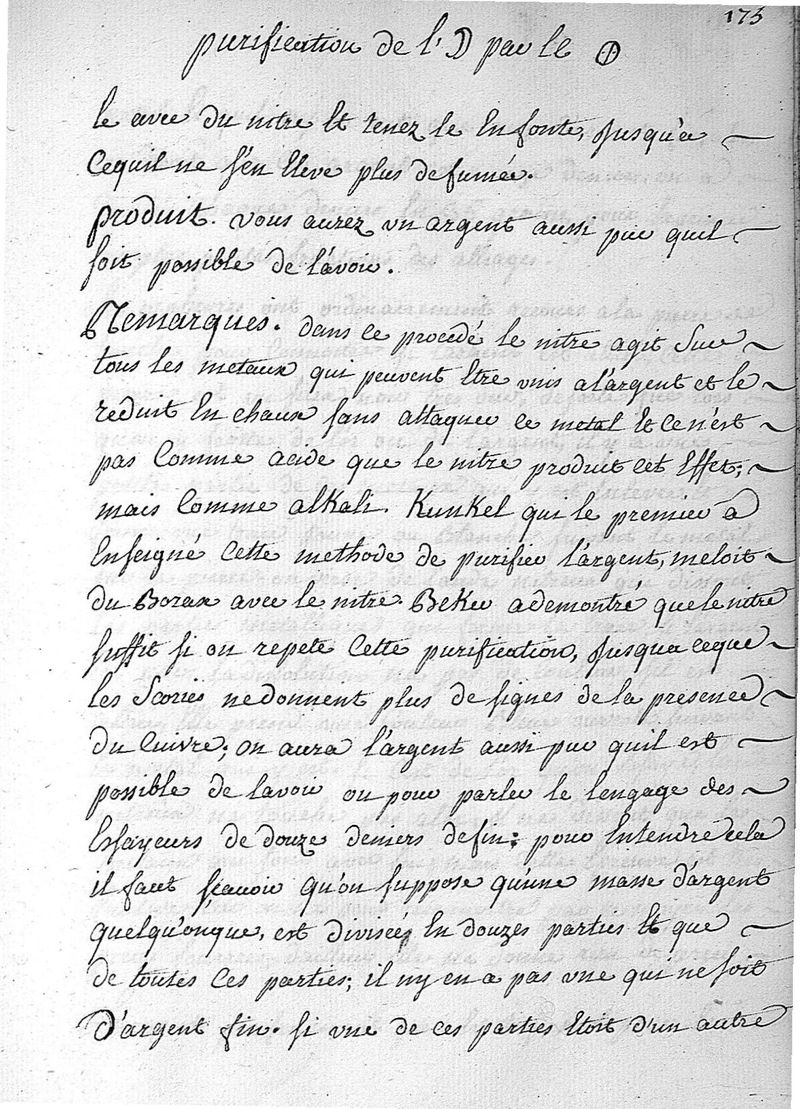 175
purification de l'☽ par le 🜕
le avec du nitre Et tenez le En fonte, Jusqu'a
Cequil ne s'en Eleve plus defumée.
produit. vous aurez un argent aussi pur quil
soit possible de l'avoir.
Remarques. dans ce procedé le nitre agit Sur
tous les metaux qui peuvent Etre unis a l'argent et le
reduit En chaux sans attaquer ce metal Et ce n'est
pas Comme acide que le nitre produit cet Effet;
mais Comme alKali. Kunkel qui le premier à
Enseigné Cette methode de purifier l'argent, meloit
du Borax avec le nitre. BeKer a demontré que le nitre
suffit si on repete Cette purification, Jusqua ceque
les Scories ne donnent plus de signes de la presence
du Cuivre; on aura l'argent aussi pur quil est
possible de lavoir ou pour parler le lengage des
Essayeurs de douze deniers de fin; pour Entendre cela
il faut sçavoir qu'on suppose qu'une masse d'argent
quelqu'onque, est divisée En douzes parties Et que
de toutes Ces parties; il ny en a pas une qui ne soit
D'argent fin. si une de ces parties Etoit d'un autre